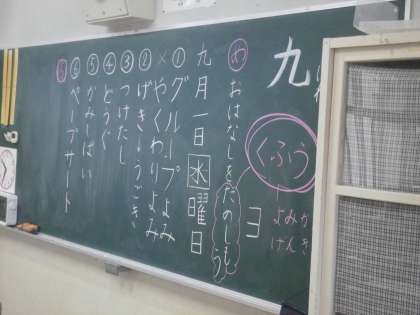 九
くふう
ヨ
よみ
かき
げん
め おはなしをたのしもう
九月一日水曜日
①グループよみ
×やくわりよみ
②げき→うごき
③つけたし
④どうぐ
⑤かみしばい
⑥ペープサート